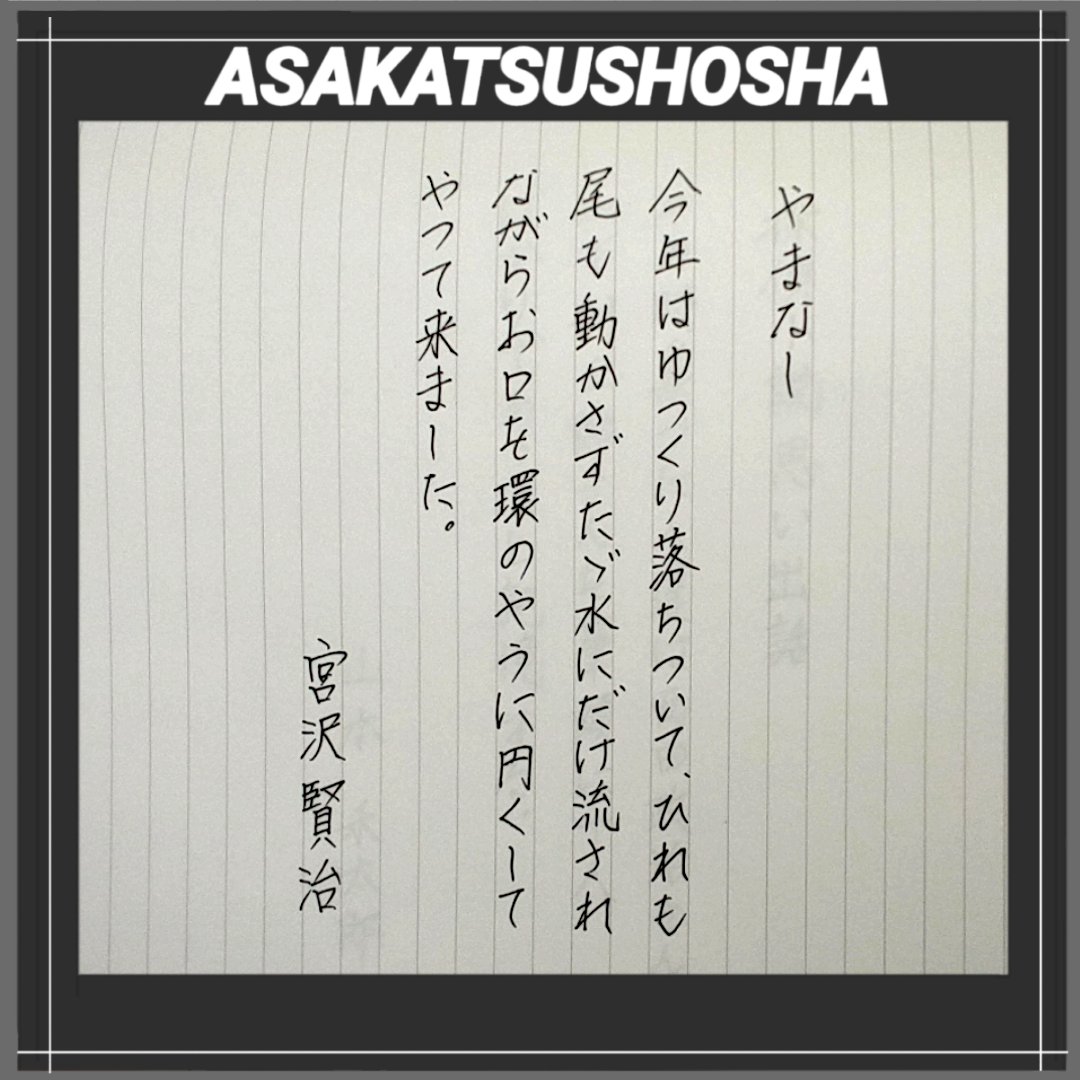 ASAKATSUSHOSHA
やまなし
今年はゆつくり落ちついて、ひれも
尾も動かさずたゞ水にだけ流され
ながらお口を環のやうに円くして
やつて来ました。
宮沢賢治